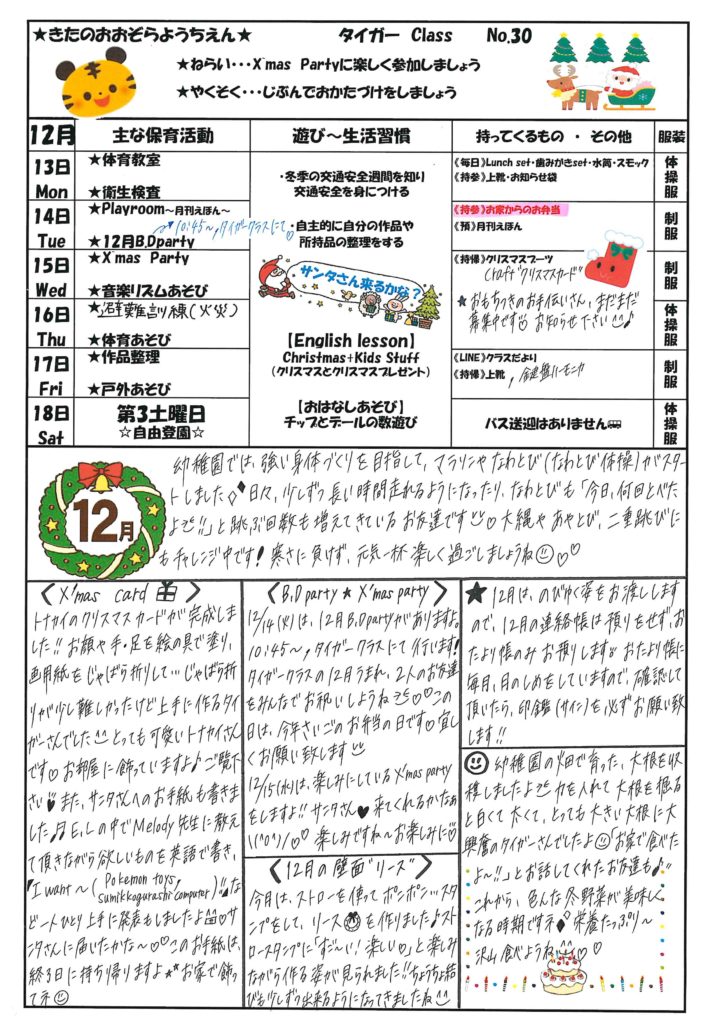 ★きたのおおぞらようちえん★ タイガー Class No.30
★ねらい・・・X'mas Partyに楽しく参加しましょう
★やくそく・・・じぶんでおかたづけをしましょう
12月 主な保育活動 遊び～生活習慣 持ってくるもの ・ その他 服装
13日 Mon
★体育教室
★衛生検査
14日 Tue
★Playroom～月刊えほん～
10:45～,タイガークラスにて
★12月B.Dparty
15日 Wed
★X'mas Party
★音楽リズムあそび
16日 Thu
★避難訓練(火災)
★体育あそび
17日 Fri
★作品整理
★戸外あそび
18日 Sat
第3土曜日
☆自由登園☆
・冬季の交通安全週間を知り
交通安全を身につける
・自主的に自分の作品や
所持品の整理をする
サンタさん来るかな?
【English lesson】
Christmas+Kids Stuff
(クリスマスとクリスマスプレゼント)
【おはなしあそび】
チップとデールの数遊び
《毎日》Lunch set・歯みがきset・水筒・スモック
《持参》上靴・お知らせ袋
《持参》お家からのお弁当
《預》月刊えほん
《持帰》クリスマスブーツ
craft"クリスマスカード"
★おもちつきのお手伝いさん,まだまだ
募集中です♡お知らせ下さい^^♪
《LINE》クラスだより
《持帰》上靴,鍵盤ハーモニカ
バス送迎はありません
体操服
制服
制服
体操服
制服
体操服
12月
幼稚園では,強い身体づくりを目指して,マラソンやなわとび(なわとび体操)がスター
トしました◇◆日々,少しずつ長い時間走れるようになったり,なわとびも「今日,何回とべた
よ!!」と跳ぶ回数も増えてきているお友達です♡大縄やあやとび,二重跳びに
もチャレンジ中です!寒さに負けず,元気一杯楽しく過ごしましょうね☺♡♡
〈X'mas card〉
トナカイのクリスマスカードが完成しま
した!!お顔や手・足を絵の具で塗り,
画用紙をじゃばら折りして…じゃばら折
りが少し難しかったけど上手に作るタイ
ガーさんでした^^とっても可愛いトナカイさん
です♡お部屋に飾っていますよ♪ご覧下
さい♥また,サンタさんへのお手紙も書きま
した♪E.Lの中でMelody先生に教え
て頂きながら欲しいものを英語で書き,
「I want～(Pokemon toys,
sumikkogurashi computer)!!」な
ど一人ひとり上手に発表もしましたよ♡サ
ンタさんに届いたかな～♡♡このお手紙は,
終了日に持ち帰りますよ★★お家で飾っ
て下さい☺
〈B.D party★X'mas party〉
12/14(火)は,12月B.Dpartyがありますよ。
10:45～,タイガークラスにて行います!
タイガークラスの12月うまれ,2人のお友達
をみんなでお祝いしようね♡♡この
日は,今年さいごのお弁当の日です♡宜し
くお願い致します
12/15(水)は,楽しみにしているX'masparty
をしますよ!!サンタさん♥来てくれるかなぁ
\(^o^)/♡楽しみですね～お楽しみに♡
〈12月の壁面"リース"〉
今月は,ストローを使ってポンポンッスタ
ンプをして,リースを作りました♪スト
ロースタンプに「すご～い!楽しい♡」と楽しみ
ながら作る姿が見られました!!ちょうちょ結
びも少しずつ出来るようになってきましたね^^
★12月は,のびゆく姿をお渡しします
ので,12月の連絡帳は預りをせず,お
たより帳のみお預りします!!おたより帳に
毎月,月のしめをしていますので,確認して
頂いたら,印鑑(サイン)を,必ずお願い致
します!!
☺幼稚園の畑で育った,大根を収
穫しましたよ 力を入れて大根を掘る
と白くて太くて,とっても大きい大根に大
興奮のタイガーさんでしたよ☺お家で食べた
よ～!!」とお話してくれたお友達も♪
これから,色んな冬野菜が美味しく
なる時期ですネ◆栄養たっぷり～
沢山食べようね^^♡♡